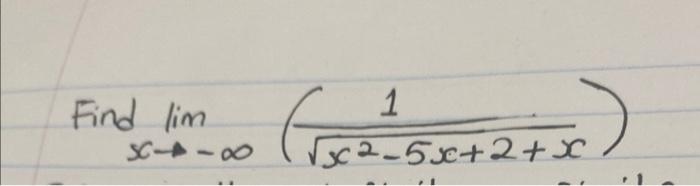 Find lim x→-∞ (1/√x²-5x+2+x)